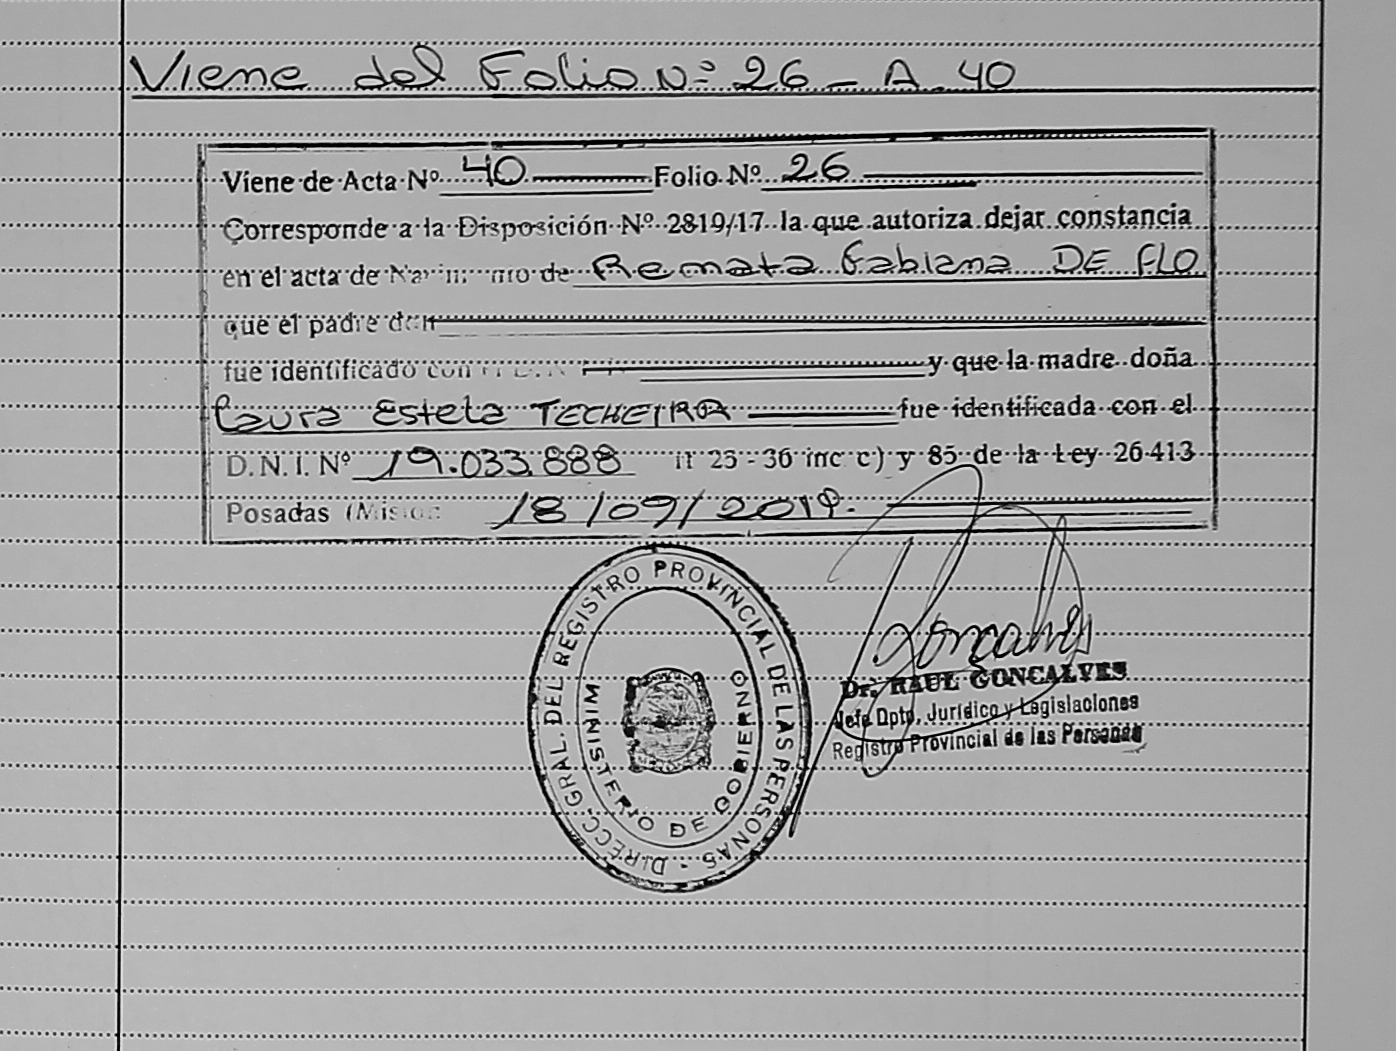 Viene del Folio Nº 26 - A. 40
Viene de Acta Nº 40 Folio Nº 26
Corresponde a la Disposición Nº 2819/17 la que autoriza dejar constancia
en el acta de Nacimiento de Renata Fabiana DE FLO
que el padre don
fue identificado con y que la madre doña
Laura Estela TECHEIRA fue identificada con el
D.N.I. Nº 19.033.888 25 - 36 inc c) y 85 de la Ley 26413
Posadas (Mision 18/09/2019.
DIRECC. GRAL. DEL REGISTRO PROVINCIAL DE LAS PERSONAS -
MINISTERIO DE GOBIERNO
Goncalves
Dr. RAUL GONCALVES
Jefe Dpto. Jurídico y Legislaciones
Registro Provincial de las Personas